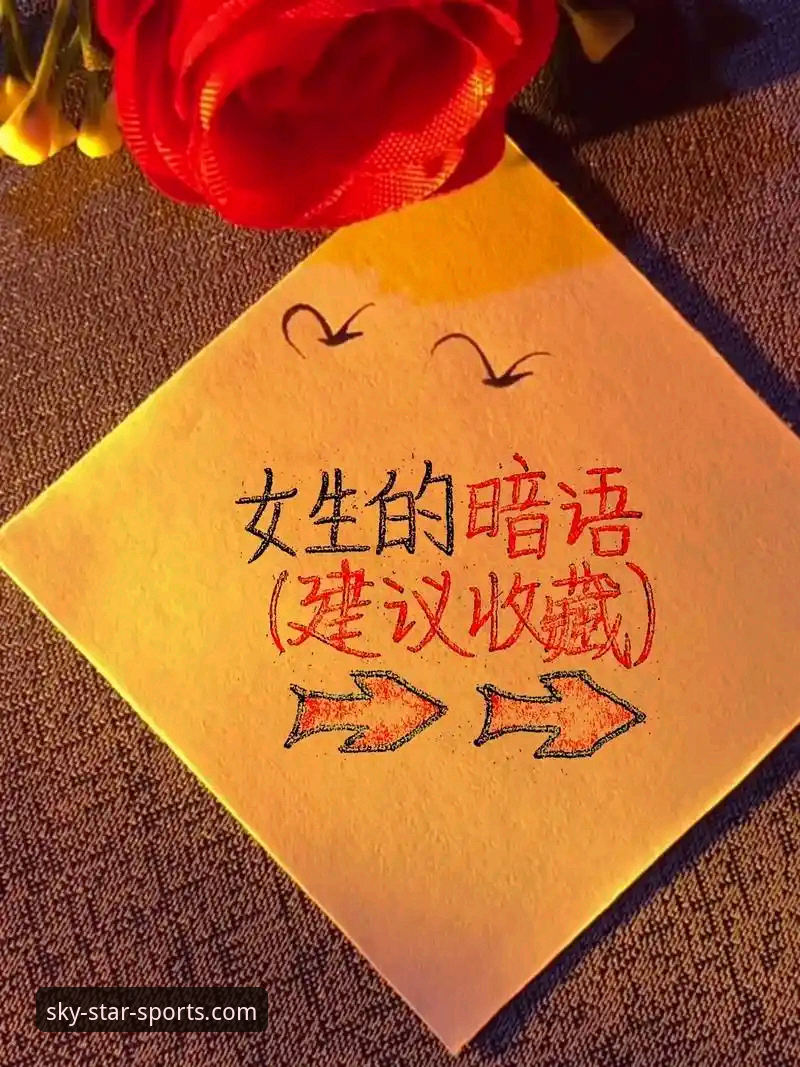 女生的暗语
(建议收藏)
sky-star-sports.com